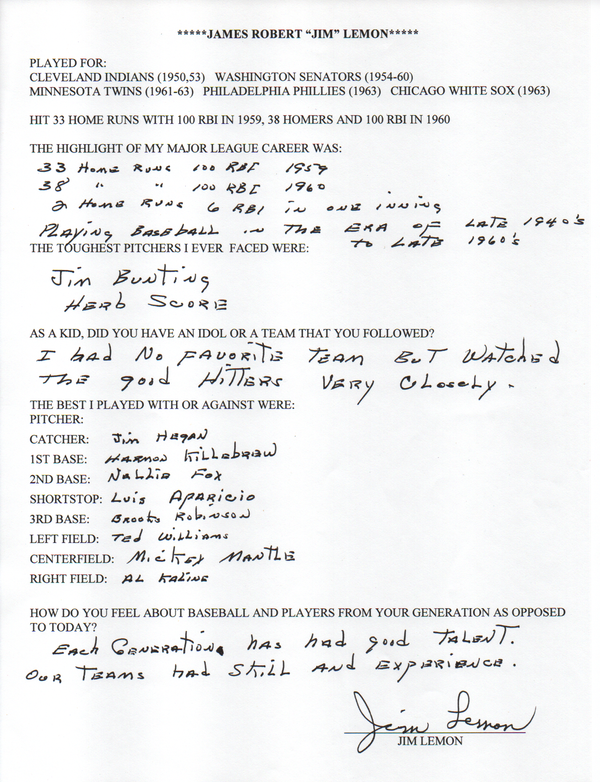 *****JAMES ROBERT “JIM” LEMON*****
PLAYED FOR:
CLEVELAND INDIANS (1950,53) WASHINGTON SENATORS (1954-60)
MINNESOTA TWINS (1961-63) PHILADELPHIA PHILLIES (1963) CHICAGO WHITE SOX (1963)
HIT 33 HOME RUNS WITH 100 RBI IN 1959, 38 HOMERS AND 100 RBI IN 1960
THE HIGHLIGHT OF MY MAJOR LEAGUE CAREER WAS:
33 Home Runs 100 RBI 1959
38 " " 100 RBI 1960
2 Home Runs 6 RBI in one inning
Playing Baseball in the era of late 1940's
to late 1960's
THE TOUGHEST PITCHERS I EVER FACED WERE:
Jim Bunting
Herb Score
AS A KID, DID YOU HAVE AN IDOL OR A TEAM THAT YOU FOLLOWED?
I had no favorite team but watched
the good hitters very closely.
THE BEST I PLAYED WITH OR AGAINST WERE:
PITCHER:
CATCHER: Jim Hegan
1ST BASE: Harmon Killebrew
2ND BASE: Nellie Fox
SHORTSTOP: Luis Aparicio
3RD BASE: Brooks Robinson
LEFT FIELD: Ted Williams
CENTERFIELD: Mickey Mantle
RIGHT FIELD: Al Kaline
HOW DO YOU FEEL ABOUT BASEBALL AND PLAYERS FROM YOUR GENERATION AS OPPOSED
TO TODAY?
Each Generation has had good talent.
Our teams had skill and experience.
Jim Lemon
JIM LEMON